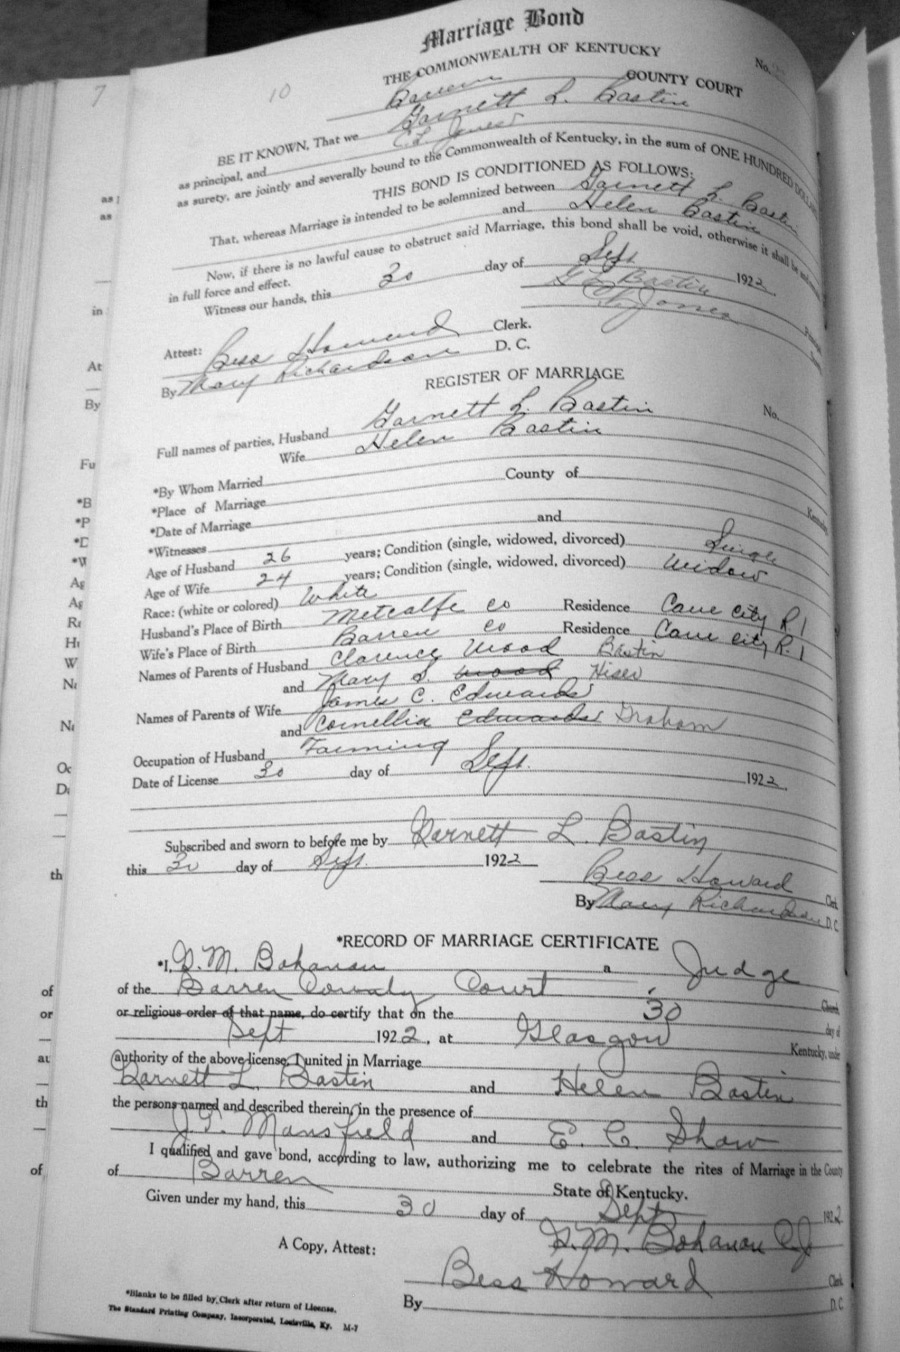 7
10
Marriage Bond
THE COMMONWEALTH OF KENTUCKY
No.
Barren COUNTY COURT
BE IT KNOWN, That we Garnett L. Bastin
as principal, and C.L. Jones
as surety, are jointly and severally bound to the Commonwealth of Kentucky, in the sum of ONE HUNDRED DOLLARS
THIS BOND IS CONDITIONED AS FOLLOWS:
That, whereas Marriage is intended to be solemnized between Garnett L. Bastin
and Helen Bastin
Now, if there is no lawful cause to obstruct said Marriage, this bond shall be void, otherwise it shall be
in full force and effect.
Witness our hands, this 30 day of Sept 1922.
G L Bastin
C.L. Jones
Attest: Bess Howard Clerk.
By Mary Richardson D. C.
REGISTER OF MARRIAGE
No.
Full names of parties, Husband Garnett L. Bastin
Wife Helen Bastin
*By Whom Married
*Place of Marriage County of Kentucky
*Date of Marriage
*Witnesses and
Age of Husband 26 years; Condition (single, widowed, divorced) Single
Age of Wife 24 years; Condition (single, widowed, divorced) Widow
Race: (white or colored) White
Husband's Place of Birth Metcalfe co Residence Cave city R. 1
Wife's Place of Birth Barren co Residence Cave city R. 1
Names of Parents of Husband Clarence Wood Bastin
and Mary S. Wood Hiser
Names of Parents of Wife James C. Edwards
and Cornellia Edwards Graham
Occupation of Husband Farming
Date of License 30 day of Sept. 1922.
Subscribed and sworn to before me by Garnett L. Bastin
this 30 day of Sept. 1922
Bess Howard Clerk
By Mary Richardson D. C.
*RECORD OF MARRIAGE CERTIFICATE
*I, G. M. Bohanan a Judge
of the Barren County Court Church
or religious order of that name, do certify that on the 30 day of
Sept 1922, at Glasgow Kentucky, under
authority of the above license, I united in Marriage
Garnett L. Bastin and Helen Bastin
the persons named and described therein, in the presence of
J.T. Mansfield and E. C. Shaw
I qualified and gave bond, according to law, authorizing me to celebrate the rites of Marriage in the County
of Barren State of Kentucky.
Given under my hand, this 30 day of Sept 1922
G. M. Bohanan CJ
A Copy, Attest: Bess Howard Clerk
By D. C
*Blanks to be filled by Clerk after return of License.
The Standard Printing Company, Incorporated, Louisville, Ky. M-7